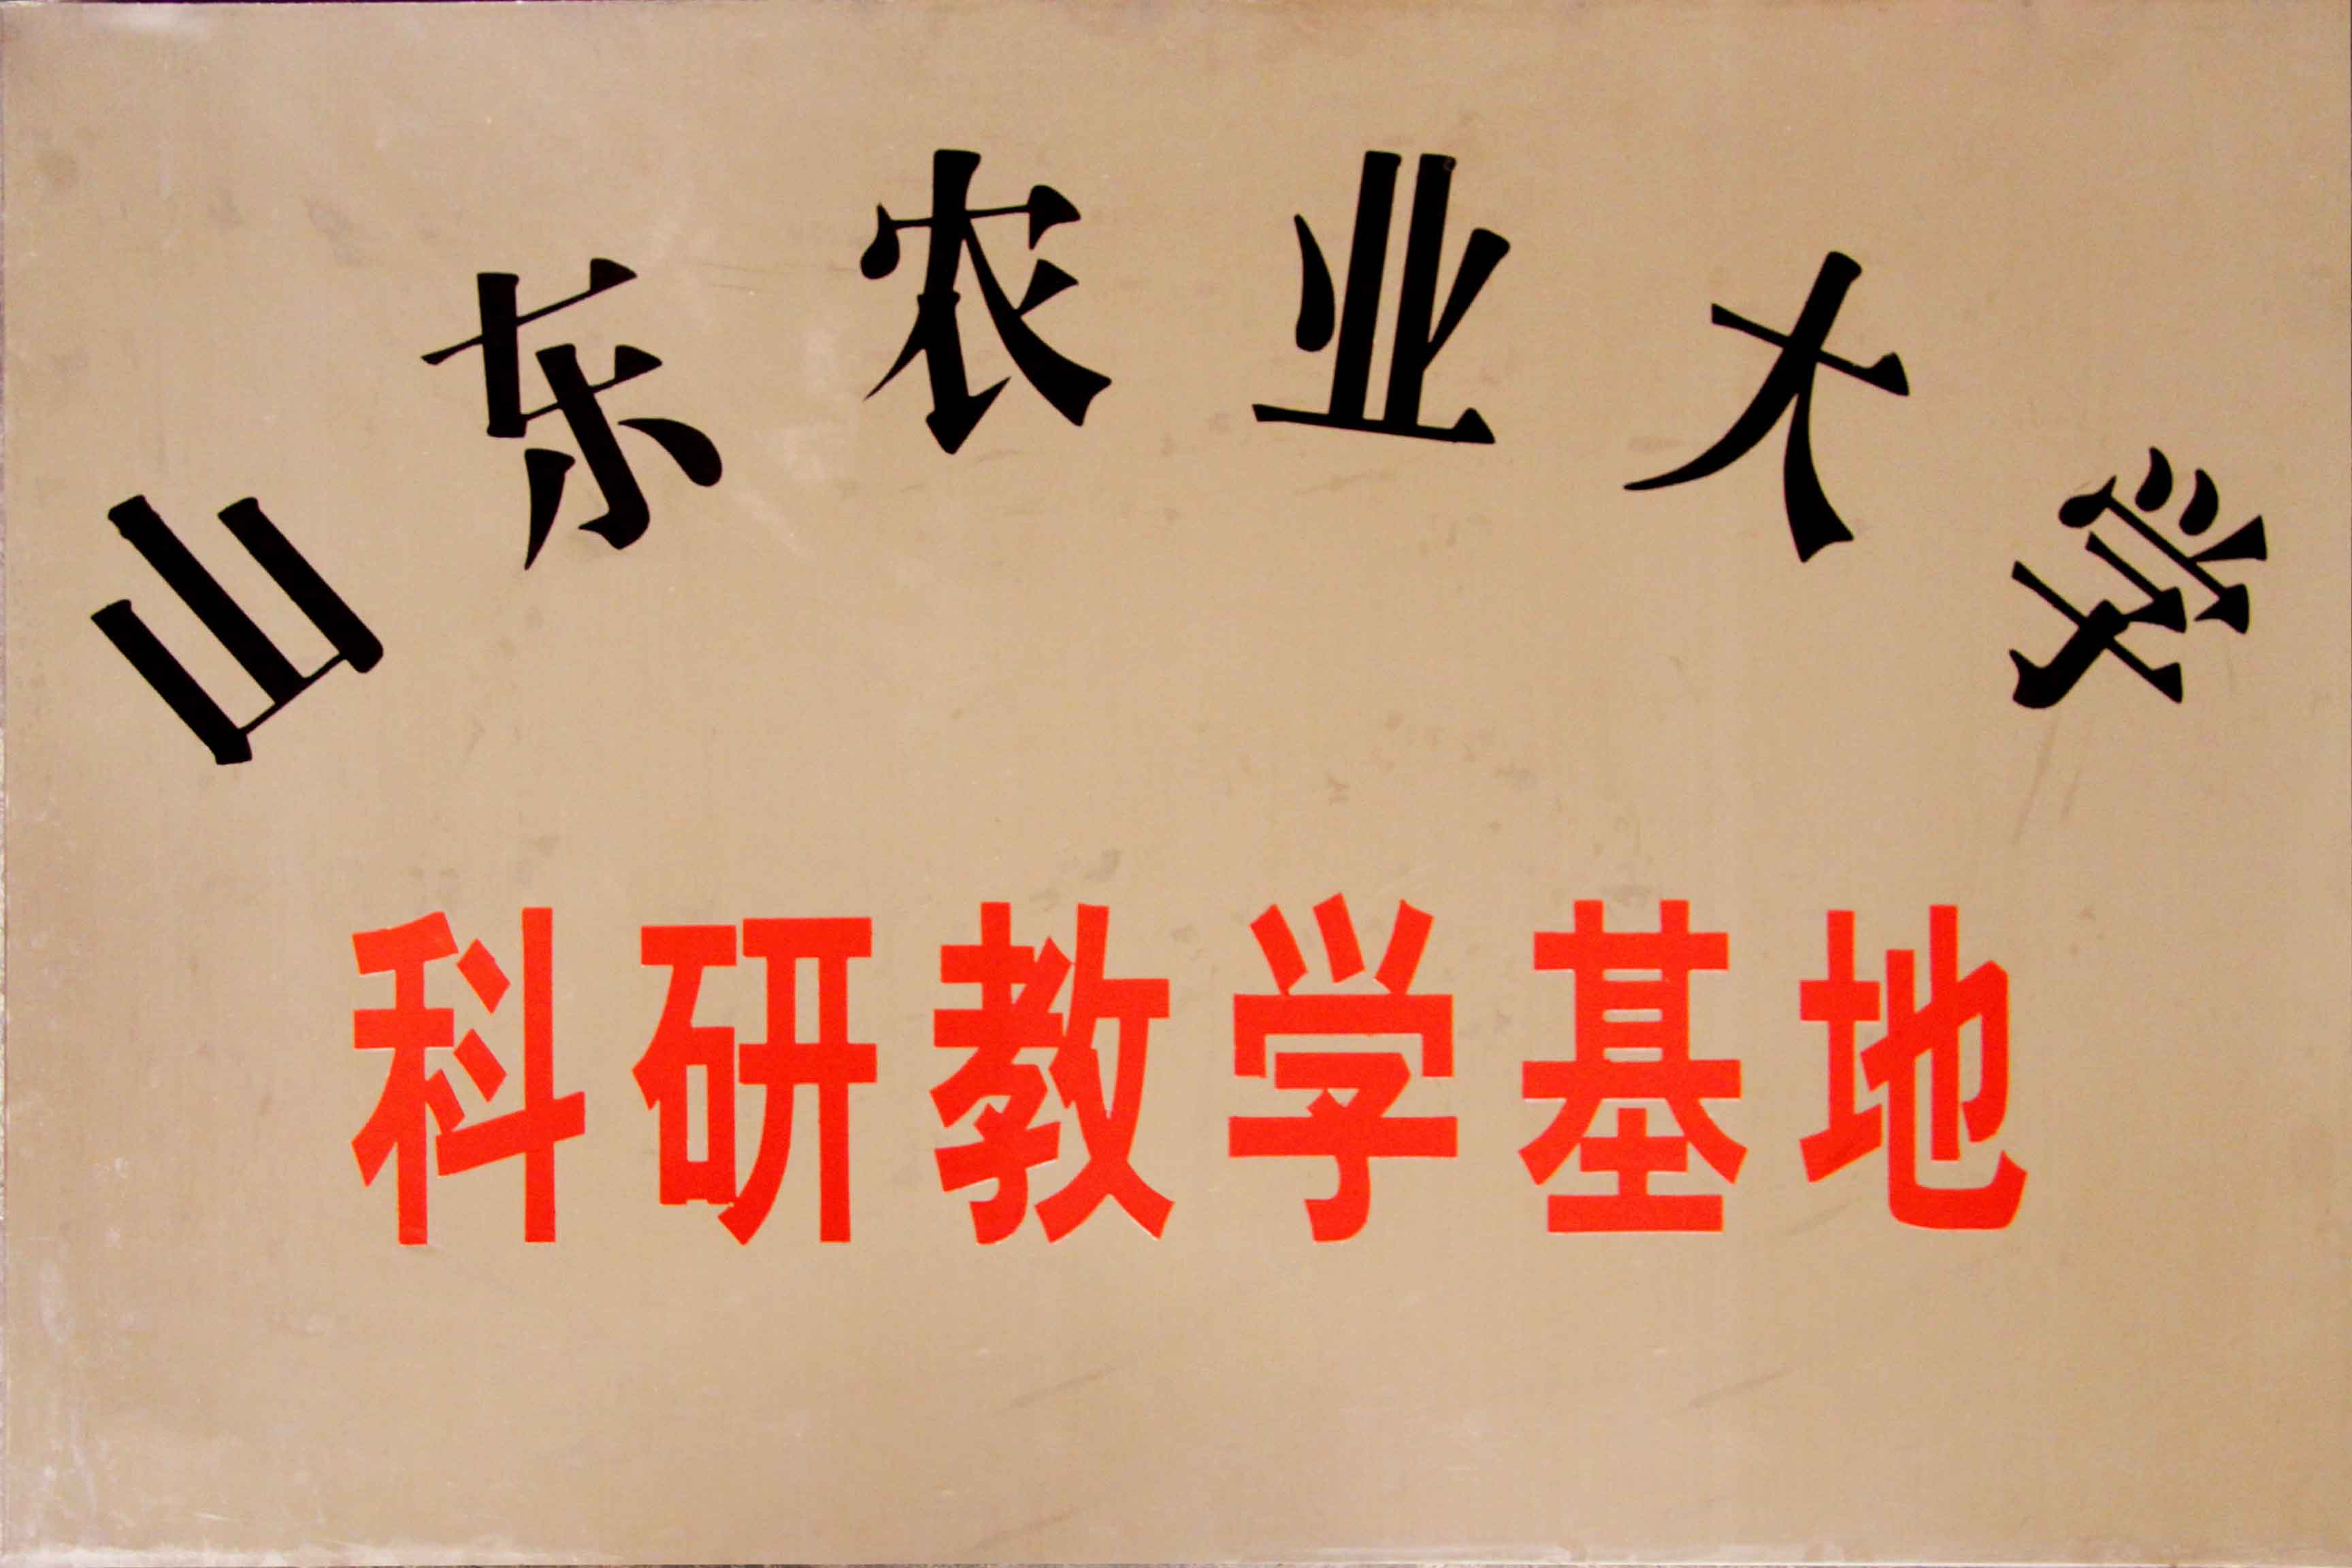 山东农业大学
科研教学基地